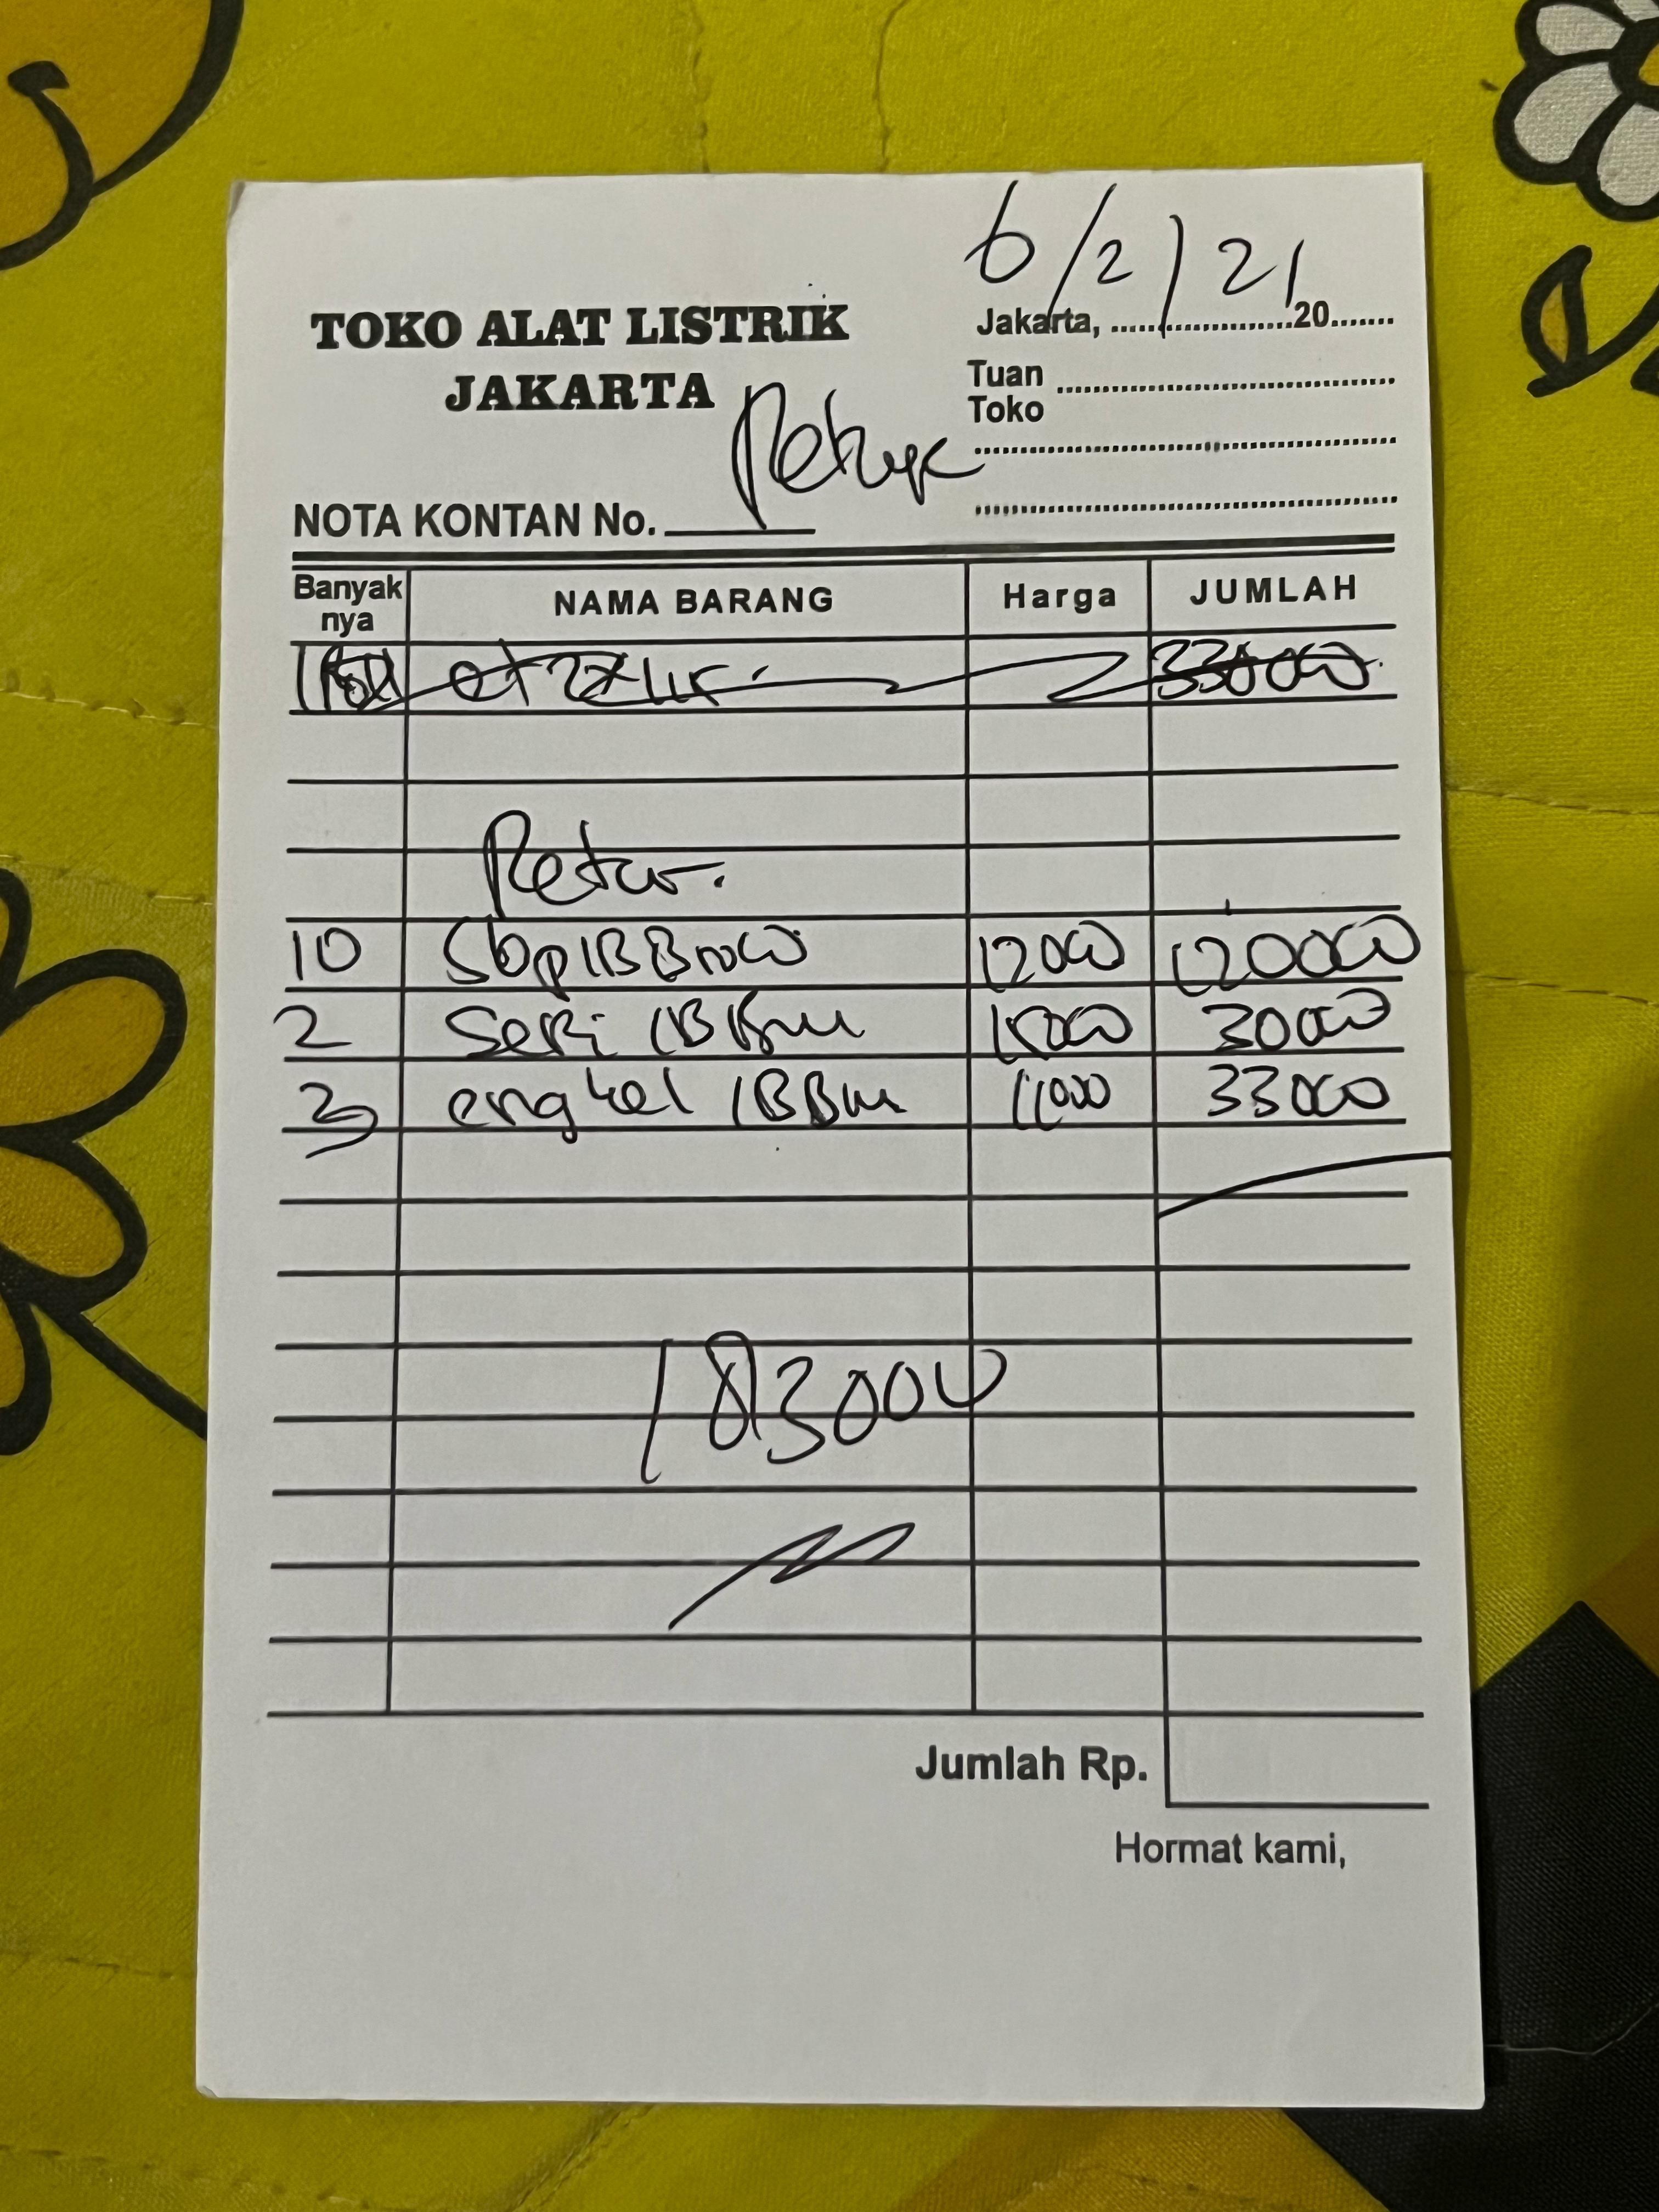 6/2/21
TOKO ALAT LISTRIK
JAKARTA
Jakarta, ........................20.......
Tuan
Toko
NOTA KONTAN No.
Banyak nya NAMA BARANG Harga JUMLAH
330000
Retur.
10 1B 12000 120000
2 Seri 1B 15000 30000
3 engkel 1B 11000 33000
183000
Jumlah Rp.
Hormat kami,